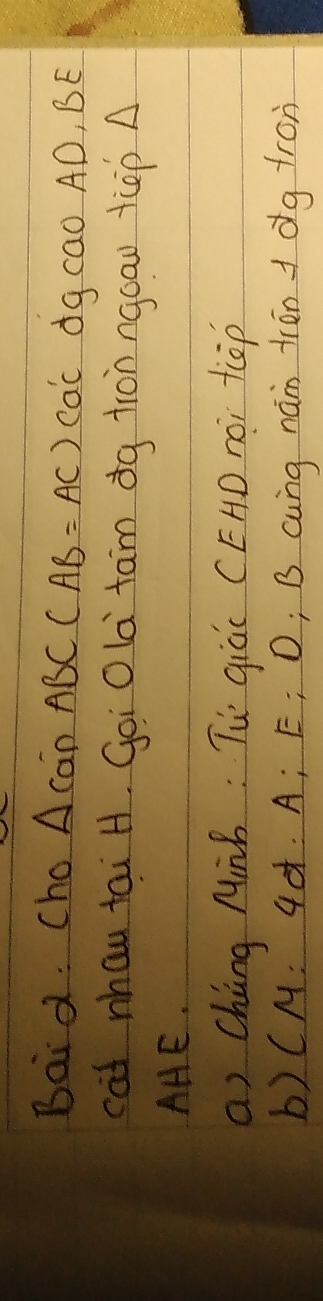 Bài 2: Cho Δ cân ABC (AB = AC) các đg cao AD, BE
cắt nhau tại H. Gọi O là tâm đg tròn ngoại tiếp Δ
AHE.
a) Chứng Minh : Tứ giác CEHD nội tiếp
b) CM: 4đ: A; E; D; B cùng nằm trên 1 đg tròn